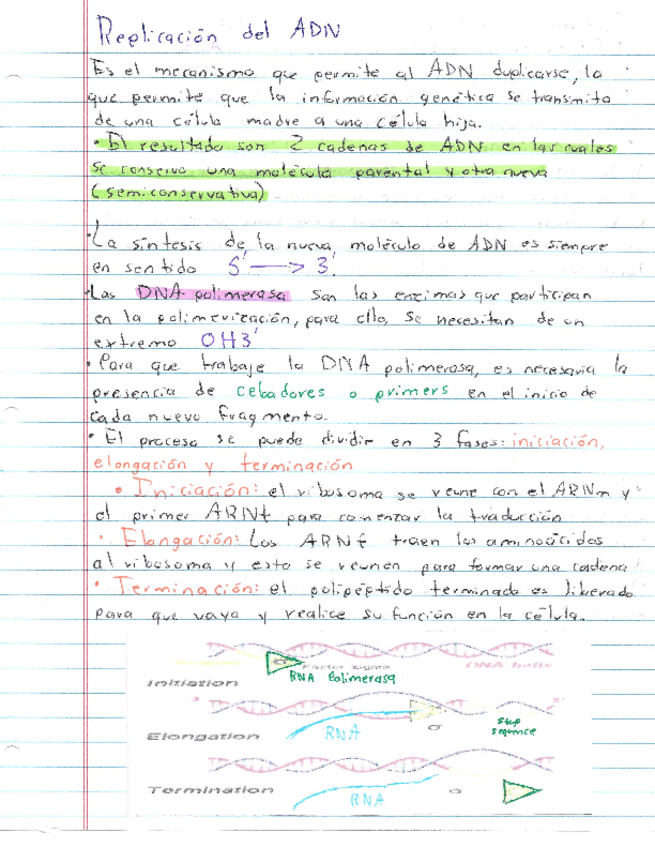 Replicación del ADN
Es el mecanismo que permite al ADN duplicarse, lo
que permite que la información genética se transmita
de una célula madre a una célula hija.
• El resultado son 2 cadenas de ADN en las cuales
se conserva una molécula parental y otra nueva
(semiconservativa)
• La síntesis de la nueva molécula de ADN es siempre
en sentido 5' ---> 3'.
• Las DNA polimerasa son las enzimas que participan
en la polimerización, para ello, se necesitan de un
extremo OH3'
• Para que trabaje la DNA polimerasa, es necesaria la
presencia de cebadores o primers en el inicio de
cada nuevo fragmento.
• El proceso se puede dividir en 3 fases: iniciación,
elongación y terminación
• Iniciación: el ribosoma se reune con el ARNm y
el primer ARNt para comenzar la traducción
• Elongación: Los ARNt traen los aminoácidos
al ribosoma y esto se reunen para formar una cadena
• Terminación: el polipéptido terminado es liberado
para que vaya y realice su función en la célula.
σ Factor sigma DNA helix
RNA Polimerasa
Initiation
Stop
sequence
Elongation RNA σ
Termination σ
RNA